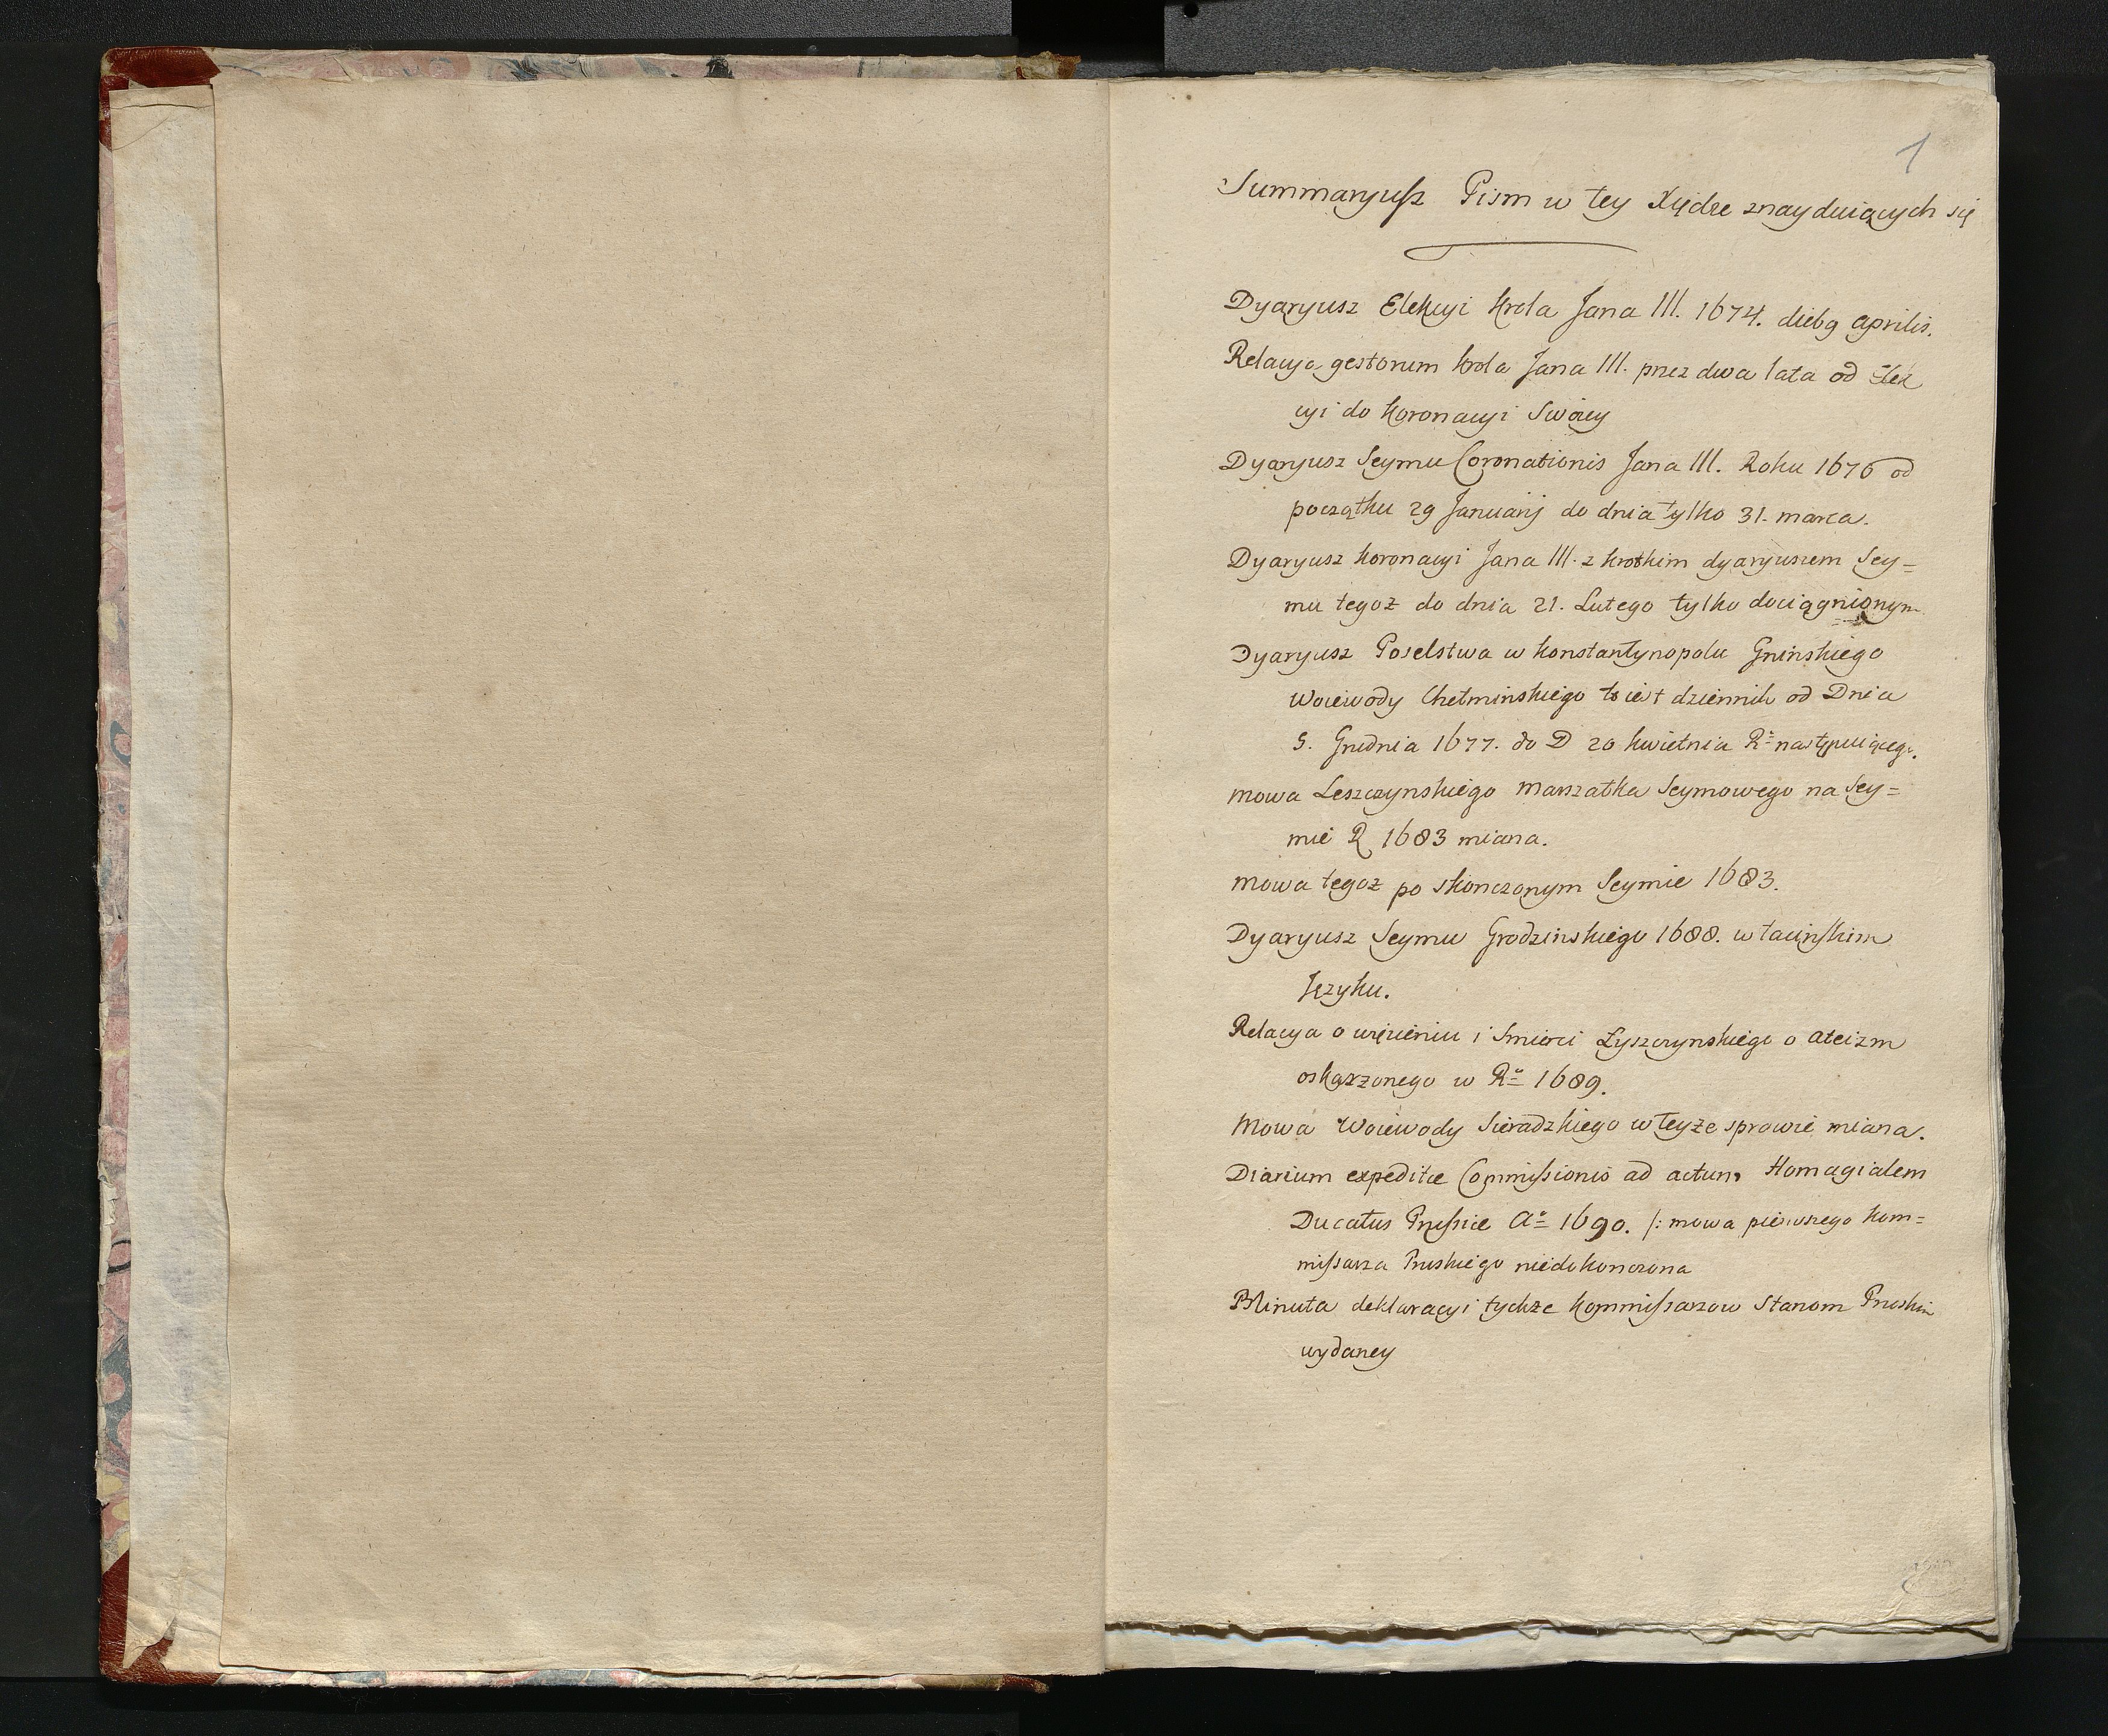 1
Summaryusz Pism w tey Xiędze znayduiących się
Dyaryusz Elekcyi Krola Jana III. 1674. diebg aprilis.
Relacya gestorum Krola Jana III. przez dwa lata od Elek
cyi do Koronacyi Swoiey
Dyaryusz Seymu Coronationis Jana III. Roku 1676 od
początku 29 Januarij do dnia tylko 31. marca.
Dyaryusz Koronacyi Jana III. z krotkim dyaryuszem Sey=
mu tegoż do dnia 21. Lutego tylko dociągnionym
Dyaryusz Poselstwa w Konstantynopolu Gninskiego
Woiewody Chełminskiego to iest dziennik od Dnia
5. Grudnia 1677. do D 20 kwietnia Rº następuiącego.
mowa Leszczynskiego marszałka Seymowego na Sey=
mie R 1683 miana.
mowa tegoż po skonczonym Seymie 1683.
Dyaryusz Seymu Grodzinskiego 1688. w łacińskim
Języku.
Relacya o więzieniu i Smierci Łyszczynskiego o ateizm
oskarzonego w Rº 1689.
Mowa Woiewody Sieradzkiego w teyże sprawie miana.
Diarium expeditæ Commissionis ad actum Homagialem
Ducatus Prussiæ Aº 1690. /: mowa pierwszego kom=
missarza Pruskiego niedokonczona
Minuta deklaracyi tychże kommissarzow Stanom Pruskim
wydaney